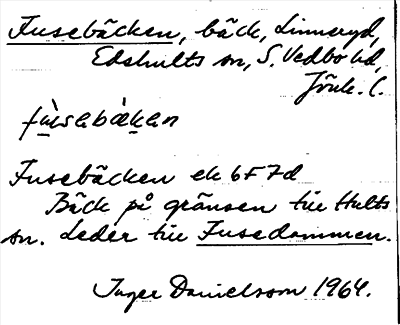 Fusebäcken, bäck, Linneryd,
Edshults sn, S. Vedbo hd,
Jönk. l.
fùsebàkan
Fusebäcken ek 6F7d
Bäck på gränsen till Hults
sn. Leder till Fusedammen.
Inger Danielsson 1964.